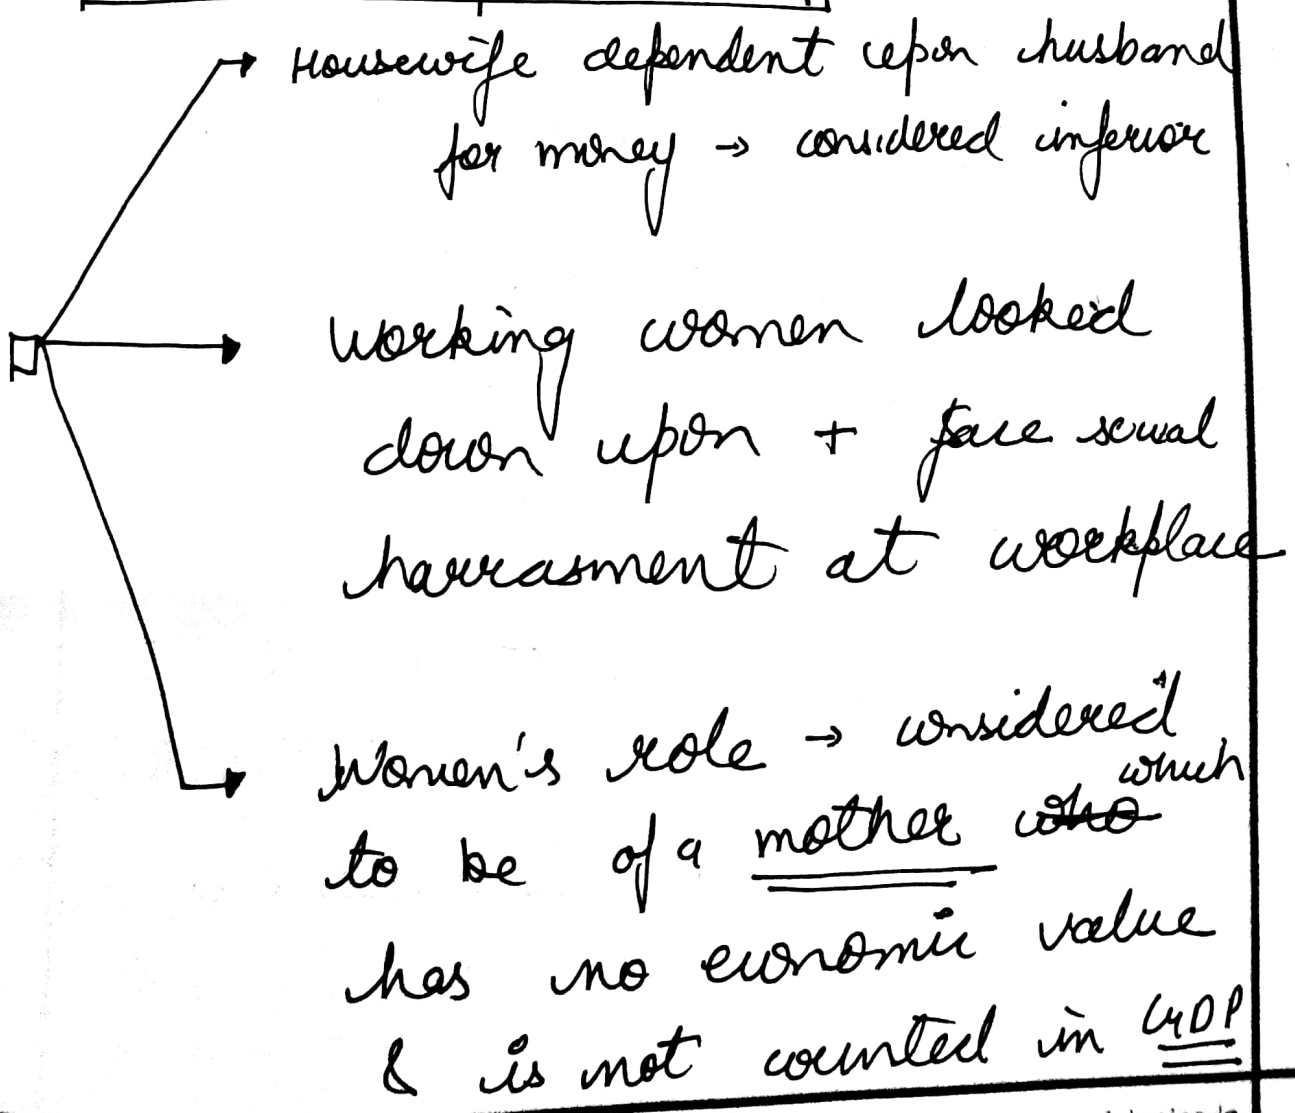 Housewife dependent upon husband
for money → considered inferior
Working women looked
down upon + face sexual
harrasment at workplace
Women's role → considered
which
to be of a mother who
has no economic value
& is not counted in GDP